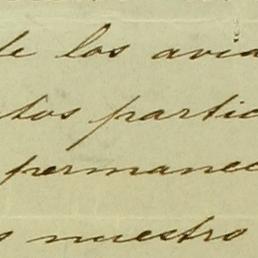 de los avia
tos partic
permanec
s nuestro